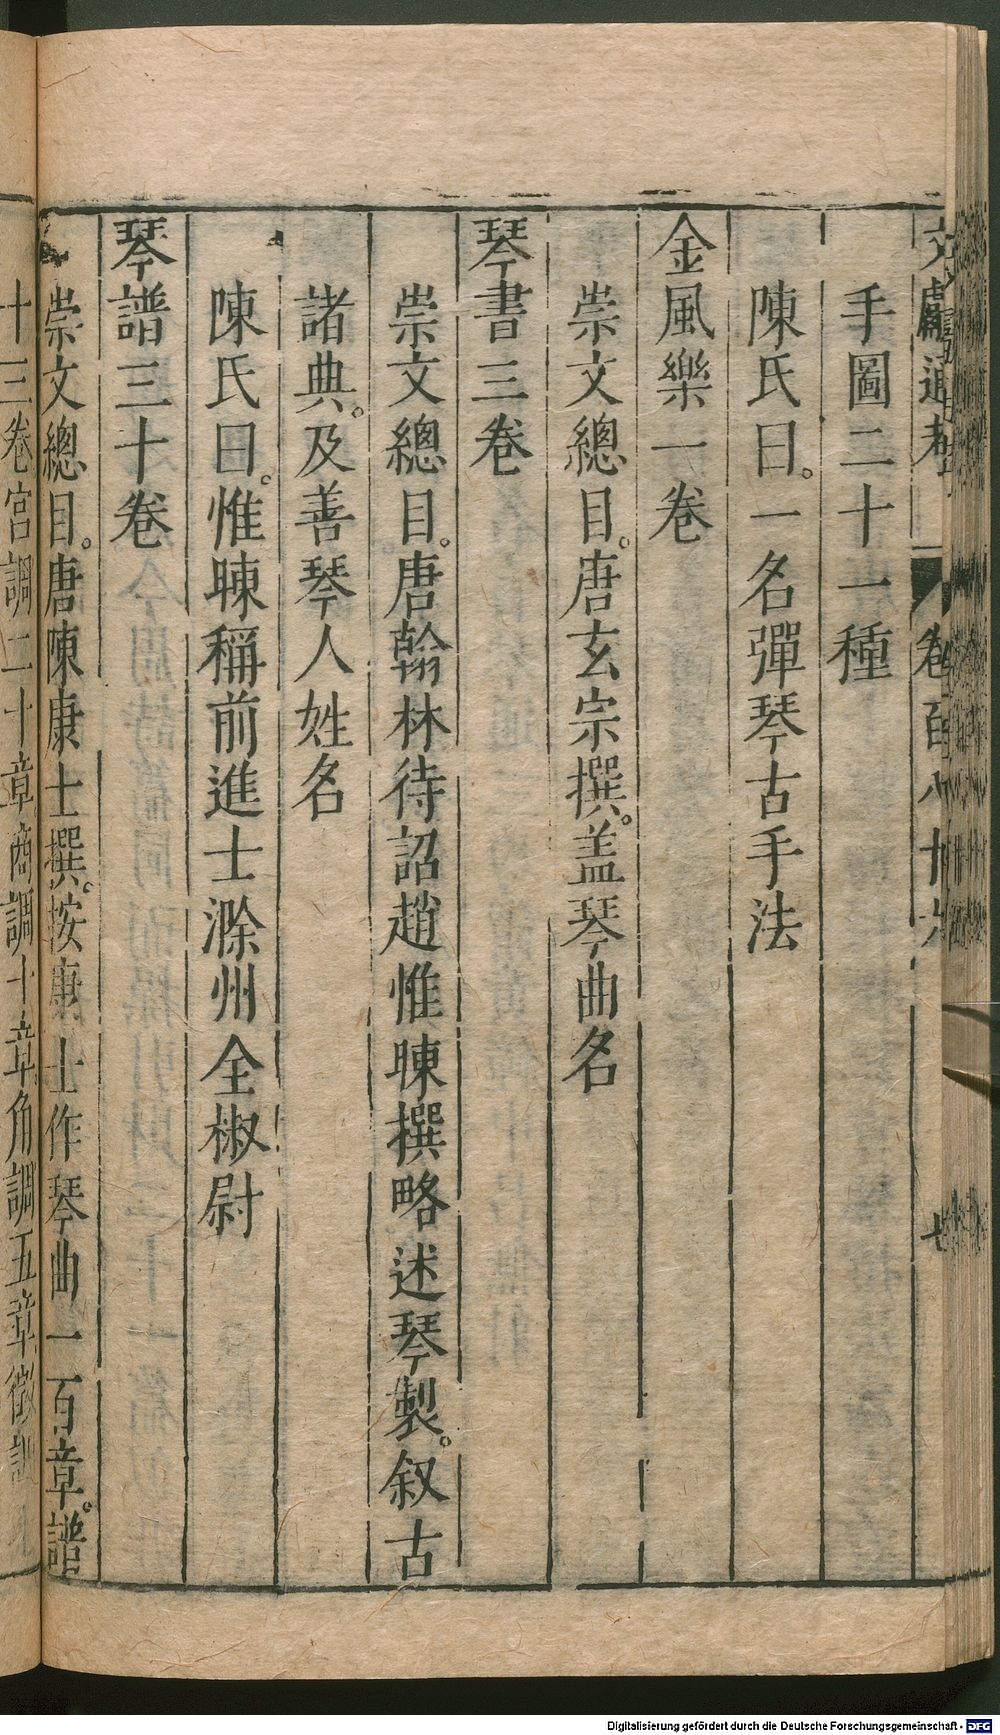 文獻通考 卷百八十六 七
手圖二十一種
陳氏曰。一名彈琴古手法
金風樂一卷
崇文總目。唐玄宗撰。盖琴曲名
琴書三卷
崇文總目。唐翰林待詔趙惟暕撰略述琴製。叙古
諸典。及善琴人姓名
陳氏曰。惟暕稱前進士滁州全椒尉
琴譜三十卷
崇文總目。唐陳康士撰。按康士作琴曲一百章。譜
十三卷宮調二十章商調十章角調五章徵調
Digitalisierung gefördert durch die Deutsche Forschungsgemeinschaft - DFG